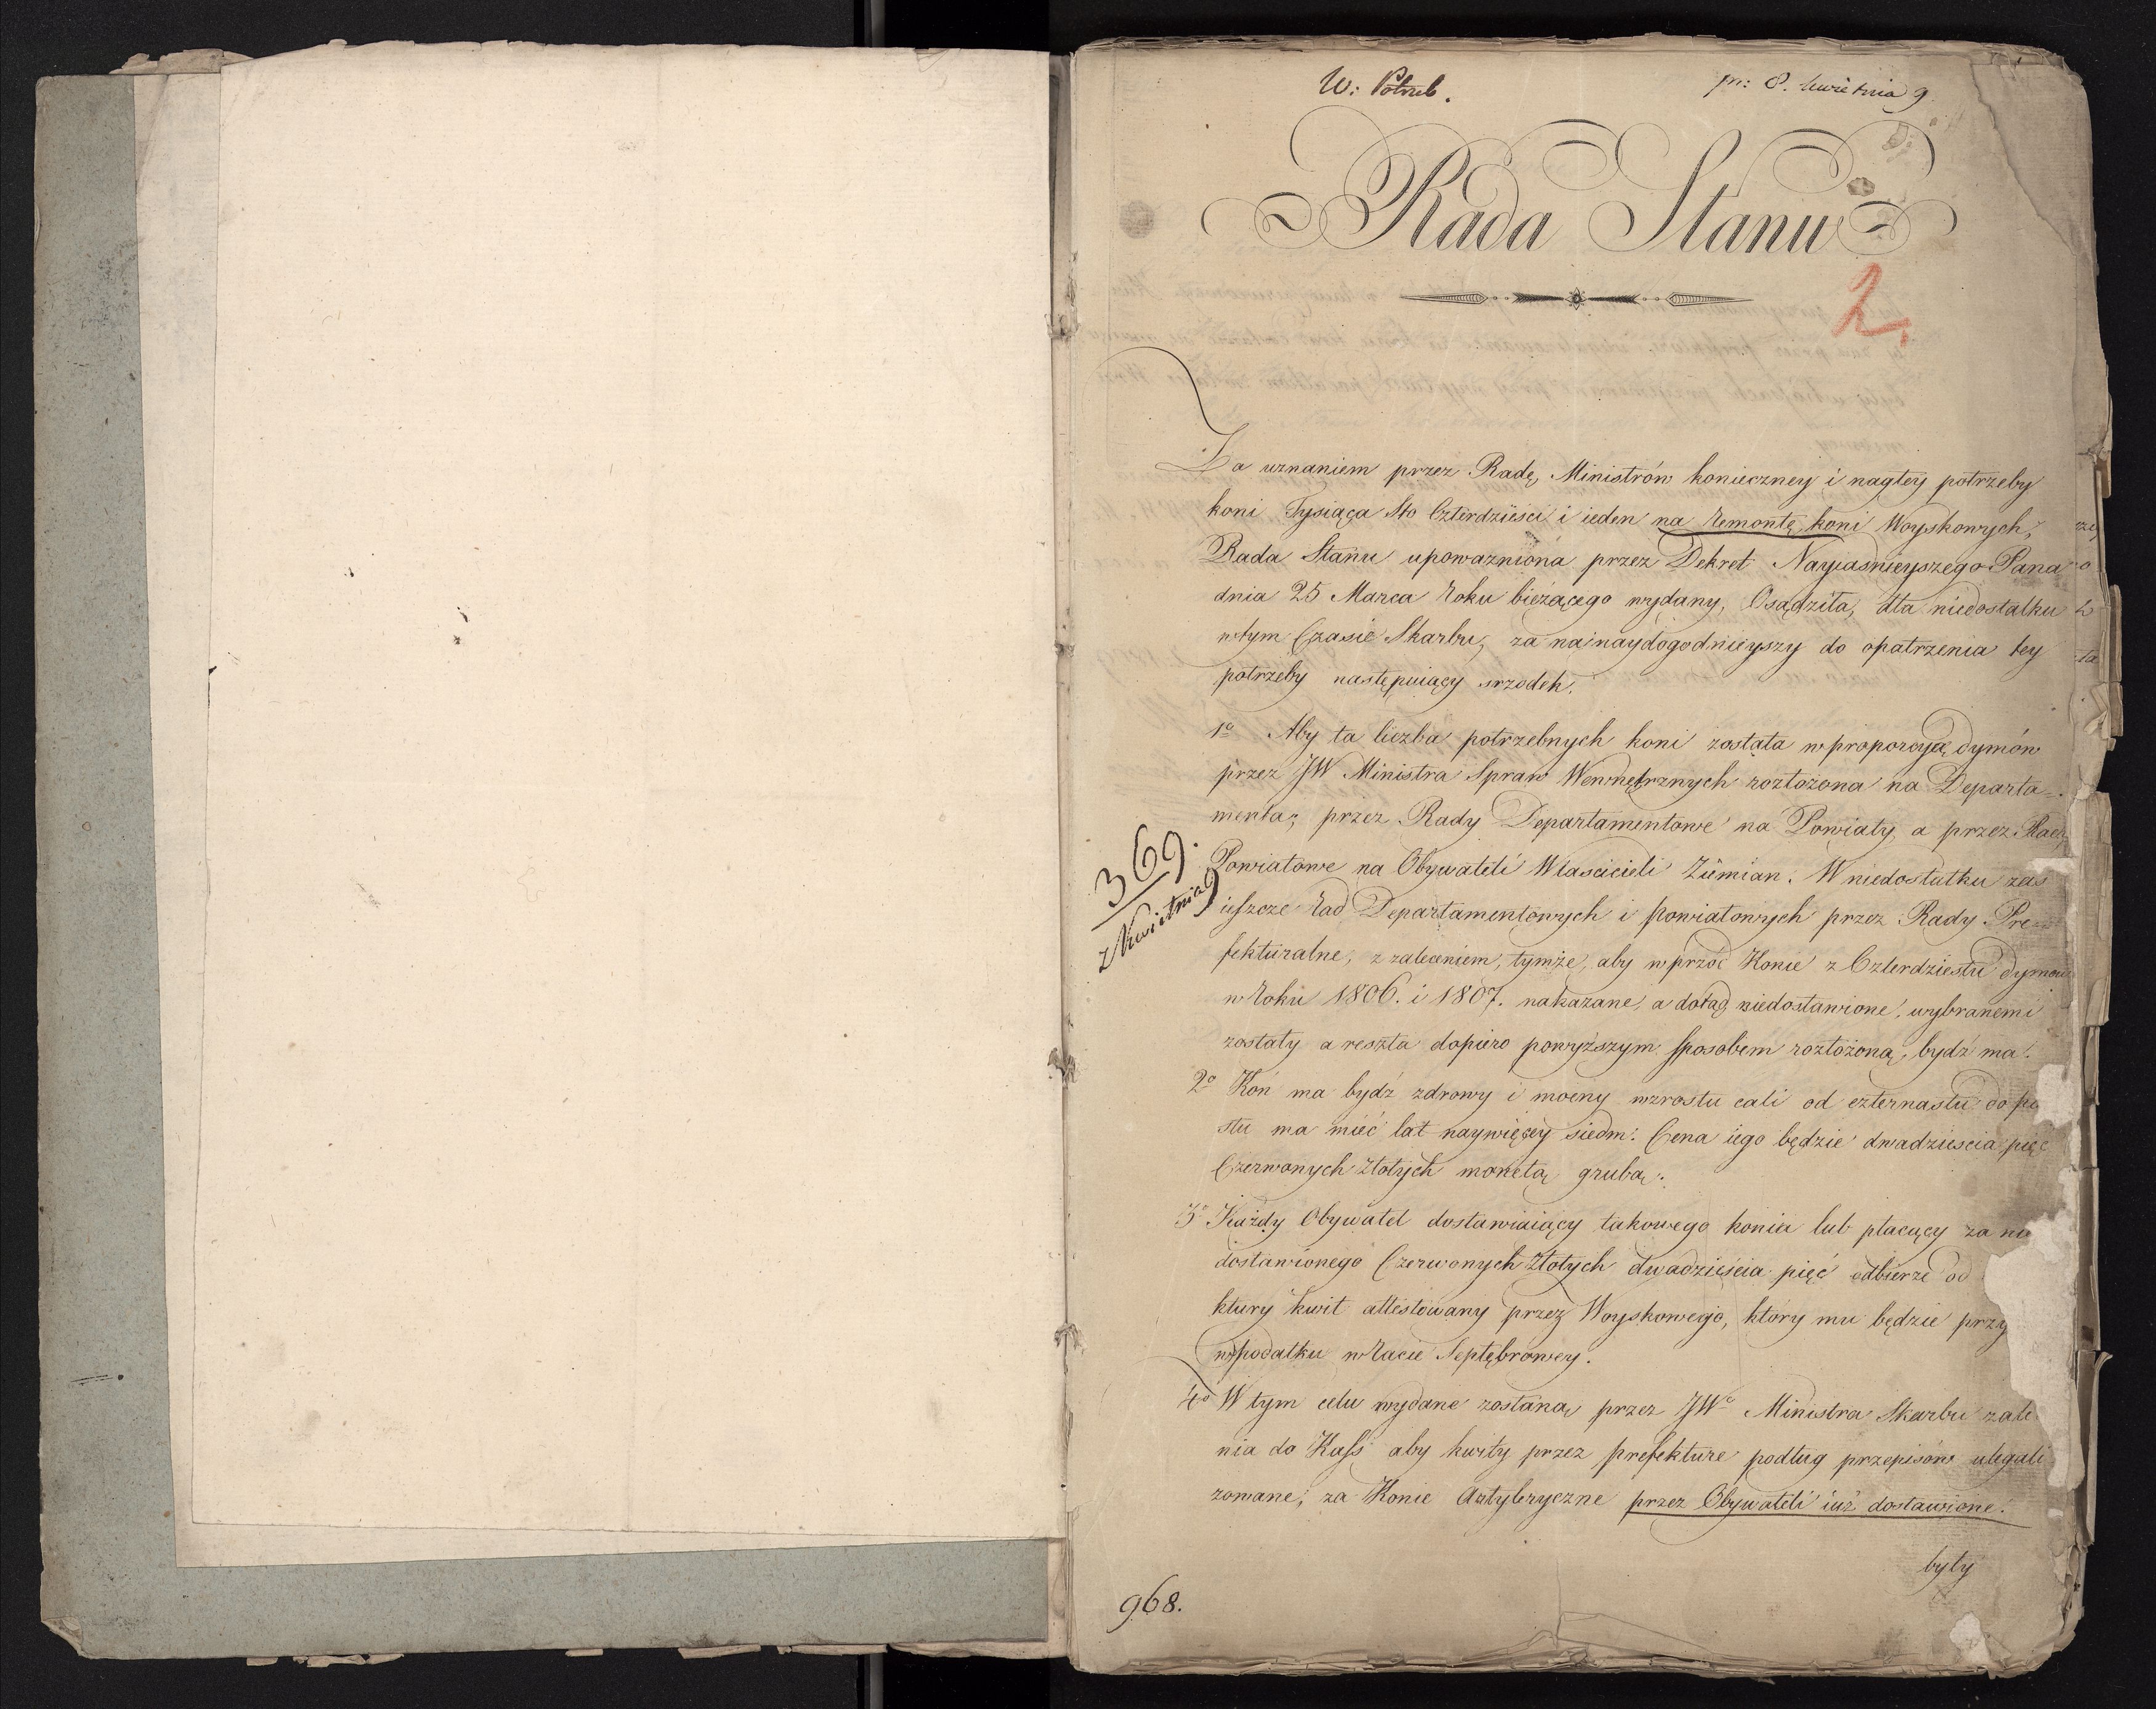 W: Potrzeb.
pr: 8. kwietnia 9
Rada Stanu
2.
Za uznaniem przez Radę Ministrów konieczney i nagłey potrzeby
koni Tysiąca Sto Czterdzieści i ieden na remontę koni Woyskowych,
Rada Stanu upoważniona przez Dekret Nayiaśnieyszego Pana
dnia 25 Marca Roku bieżącego wydany, Osądziła, dla niedostatku
w tym Czasie Skarbu, za naynaydogodnieyszy do opatrzenia tey
potrzeby następuiący srzodek.
1o Aby ta liczba potrzebnych koni została w proporcyą dymów
przez JW Ministra Spraw Wewnętrznych rozłożona na Departa=
menta; przez Rady Departamentowe na Powiaty, a przez Rady
Powiatowe na Obywateli Właścicieli Ziemian. W niedostatku zaś
ieszcze Rad Departamentowych i Powiatowych przez Rady Pre=
fekturalne, z zaleceniem, tymże, aby wprzód Konie z Czterdziestu Dymów
w Roku 1806. i 1807. nakazane, a dotąd niedostawione, wybranemi
zostały a reszta dopiero powyższym sposobem rozłożoną bydź ma.
2o Koń ma bydź zdrowy i mocny wzrostu cali od czternastu do pię
stu ma mieć lat naywięcey siedm. Cena iego będzie dwadzieścia pięć
Czerwonych Złotych monetą grubą.
3o Każdy Obywatel dostawiaiący takowego konia lub płacący za nie
dostawionego Czerwonych Złotych dwadzieścia pięć odbierze od
ktury kwit attestowany przez Woyskowego, który mu będzie przy
w podatku w Racie Septębrowey.
4o W tym celu wydane zostaną przez JWo Ministra Skarbu zale
nia do Kass aby kwity przez prefekture podług przepisów ulegali
zowane, za Konie Artyleryczne przez Obywateli iuż dostawione.
były
369.
z Kwietnia 9
968.